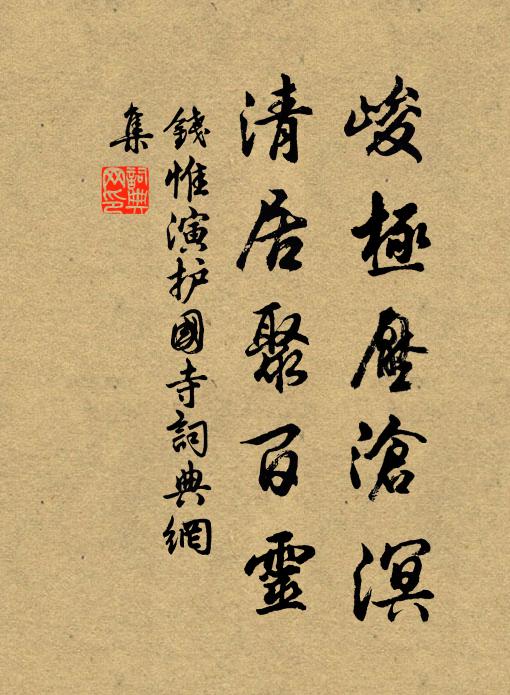 峻極壓滄溟
清居聚百靈
錢惟演护國寺詞典網
集
詞典
网印